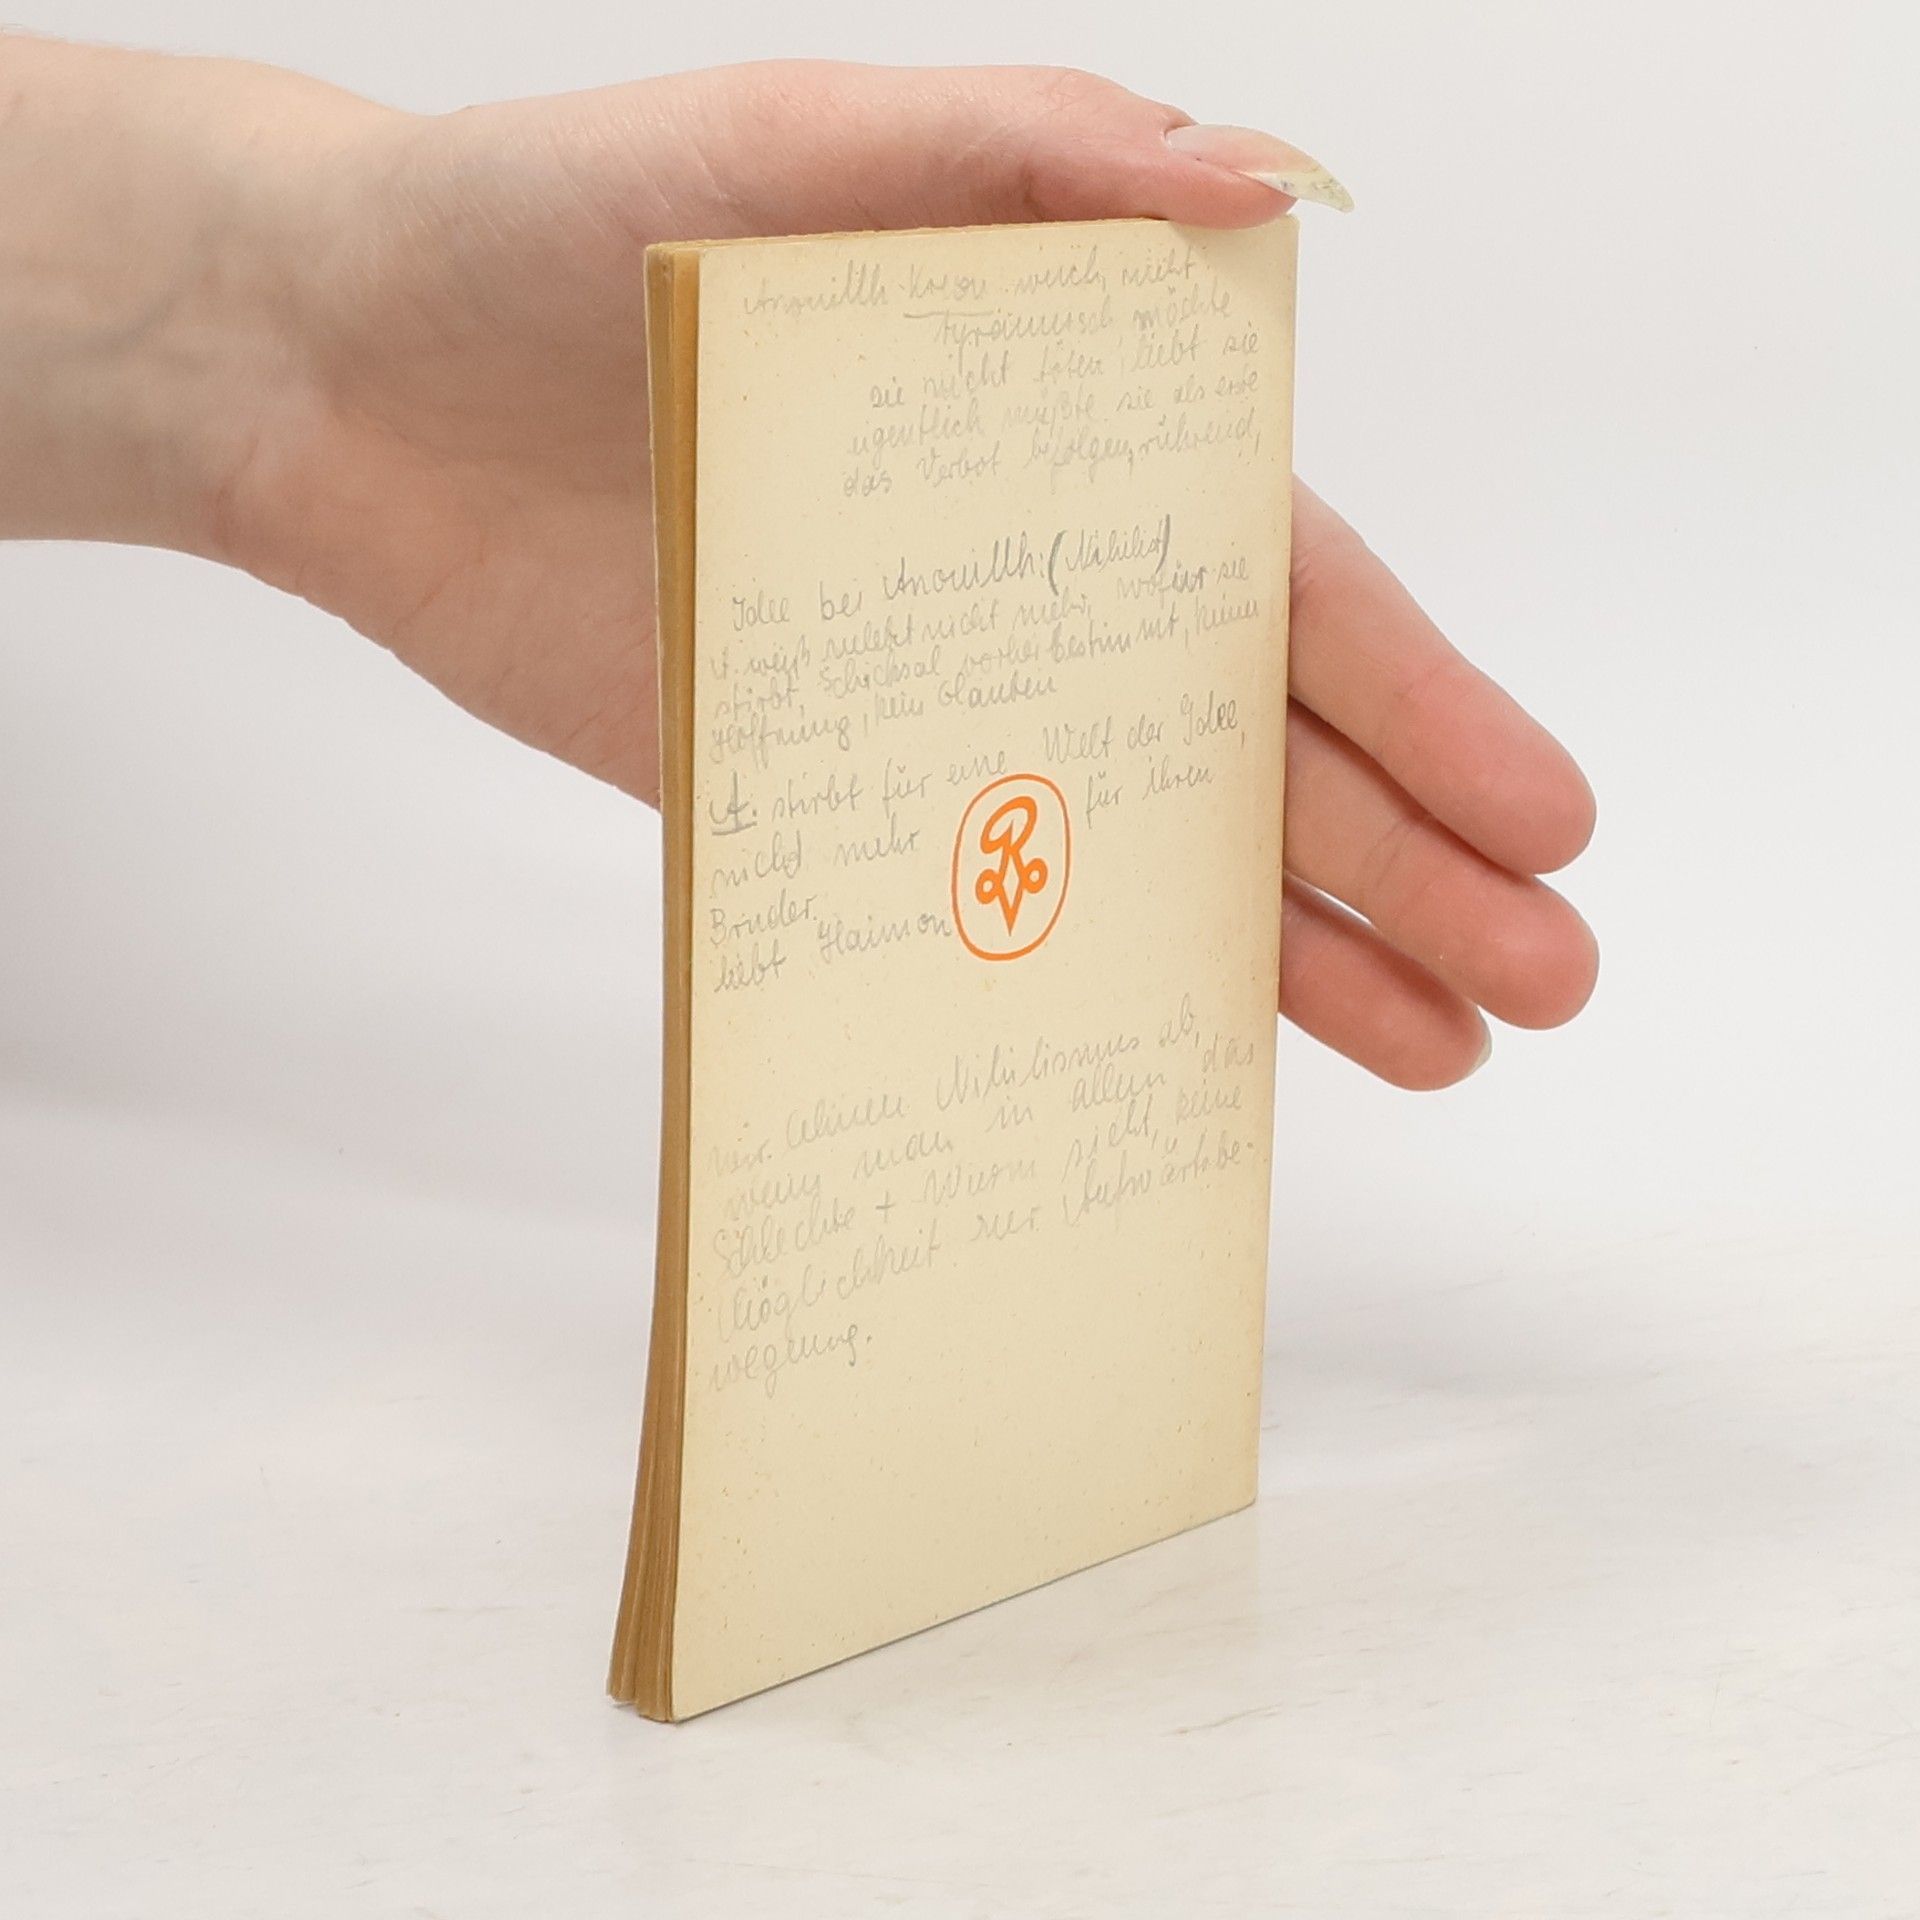 Anouillh Kreon weich, nicht
tyrannisch möchte
sie nicht töten, liebt sie
eigentlich müßte sie als erste
das Verbot befolgen, rührend,
Idee bei Anouillh: (Nihilist)
A. weiß zuletzt nicht mehr, wofür sie
stirbt, Schicksal vorherbestimmt, keine
Hoffnung, kein Glauben
A. stirbt für eine Welt der Idee,
nicht mehr für ihren
Bruder.
liebt Haimon
Wir lehnen Nihilismus ab,
wenn man in allem das
Schlechte + Miese sieht, keine
Möglichkeit zur Aufwärtsbe-
wegung.